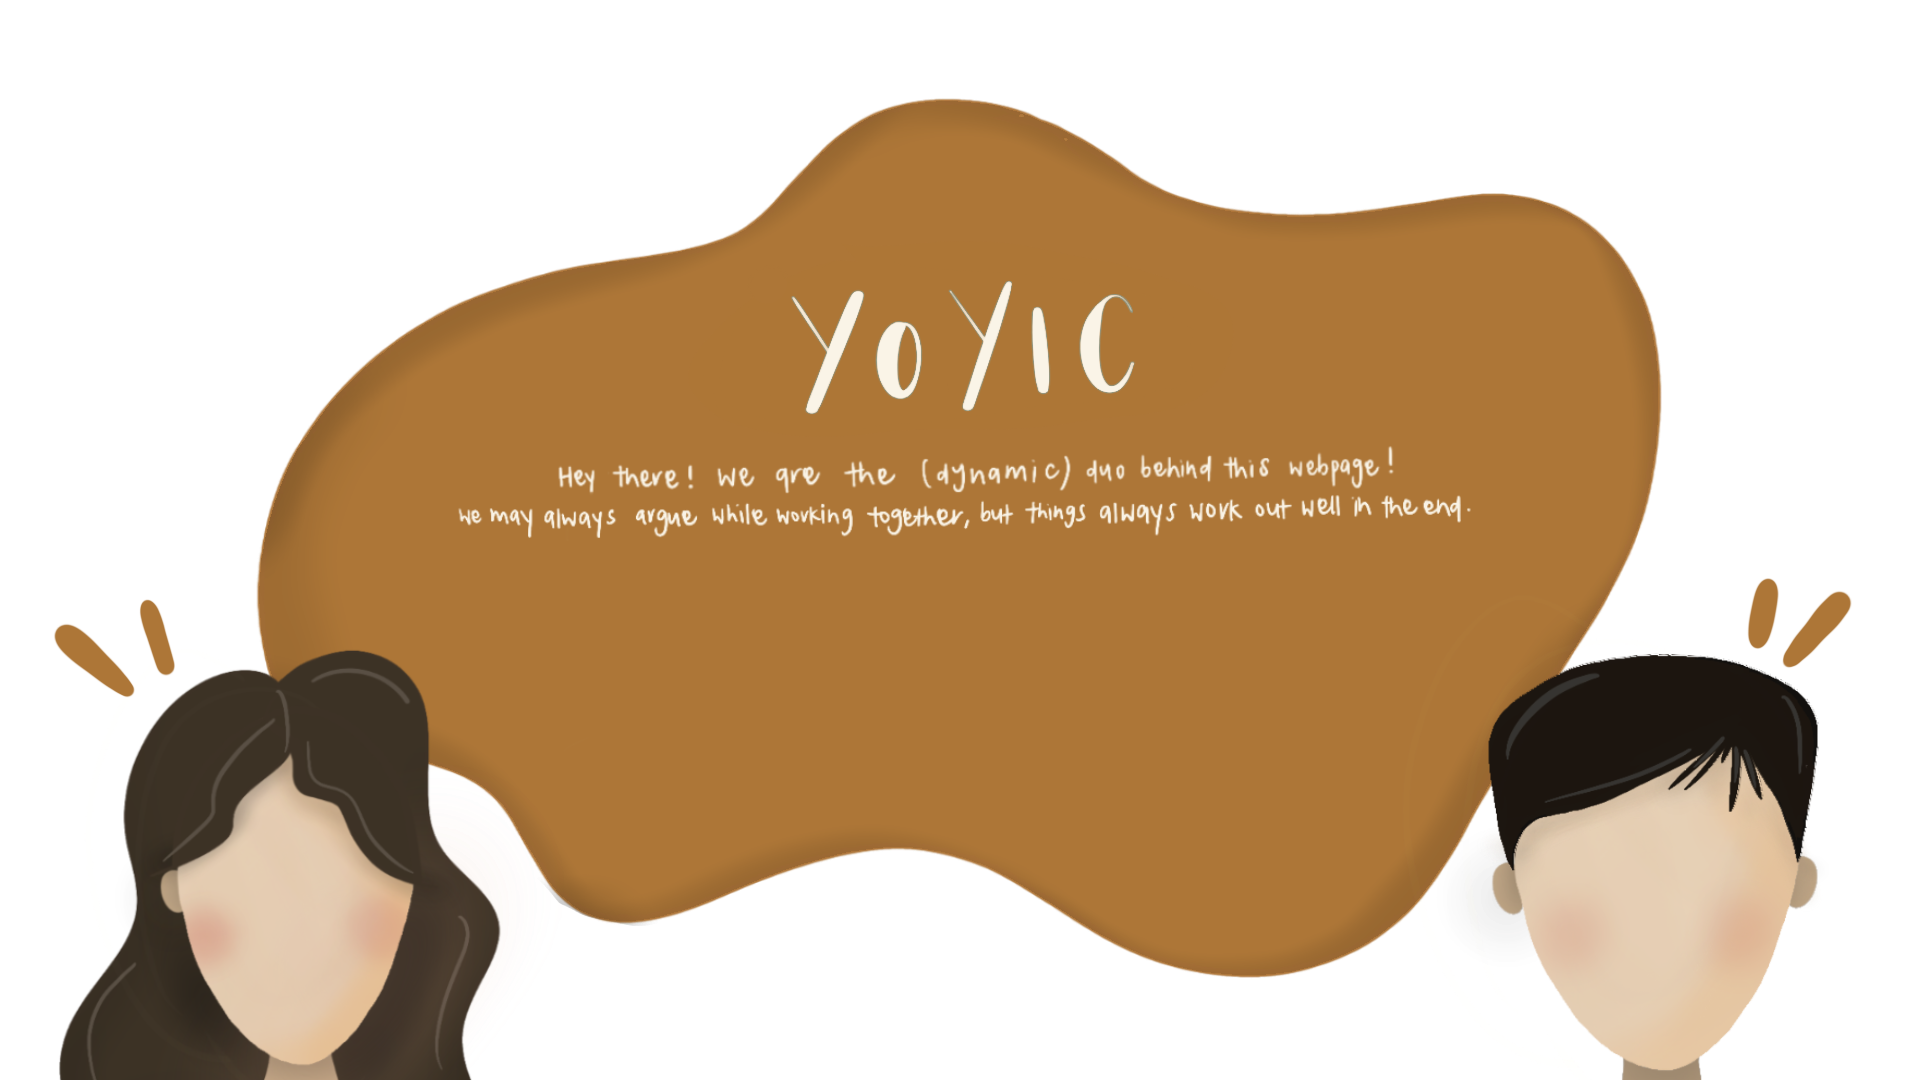 YOYIC
Hey there! we are the (dynamic) duo behind this webpage!
we may always argue while working together, but things always work out well in the end.